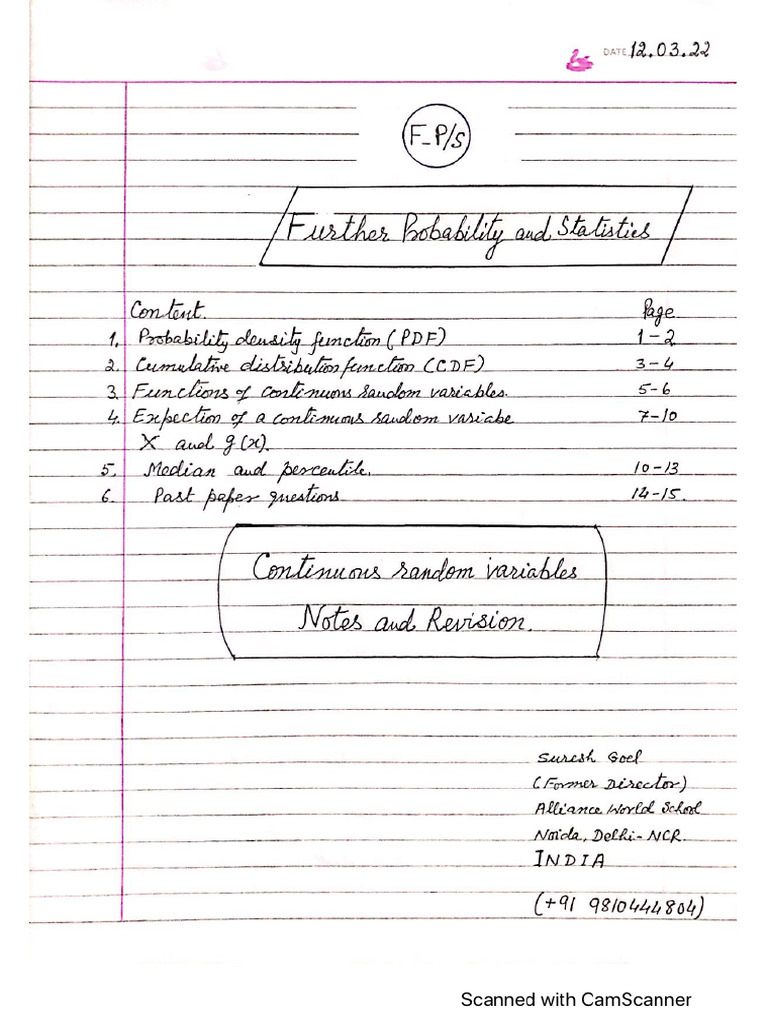 DATE 12.03.22
F_P/S
Further Probability and Statistics
Content. Page
1. Probability density function (PDF) 1-2
2. Cumulative distribution function (CDF) 3-4
3. Functions of continuous random variables. 5-6
4. Expection of a continuous random variabe 7-10
X and g(x).
5. Median and percentile. 10-13
6. Past paper questions 14-15.
Continuous random variables
Notes and Revision.
Suresh Goel
(Former Director)
Alliance World School
Noida, Delhi-NCR.
INDIA
(+91 9810444804)
Scanned with CamScanner